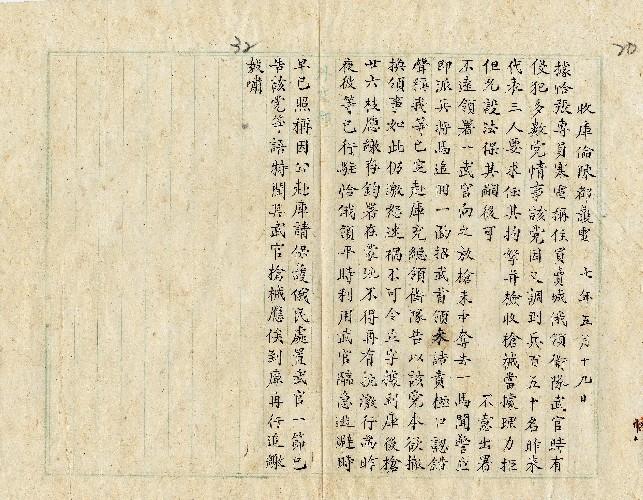 20
收庫倫陳都護電 七年五月十九日
據恰張專員寒電稱住買賣城俄領衛隊武官時有
侵犯多數党情事該党因之調到兵百五十名昨來
代表三人要求任其拘拏并檢收槍械當據理力拒
但允設法保其嗣後可 不意出署
不遠領署一武官向之放槍未中奪去一馬聞警立
即派兵將馬追回一面招武首領來詰責極口認錯
聲稱我等已定赴庫充總領衛隊告以該党本欲撤
換領事如此仍激怒速禍不可令立字據到庫後槍
廿六枝應繳存鈞署在蒙境不得再有抗激行為昨
夜彼等已行駐恰俄領平時利用武官臨急迴避時
32
早已照稱因公赴庫請保護俄民處置武官一節已
告該党等語特聞其武官槍械應俟到庫再行追繳
毅嘯